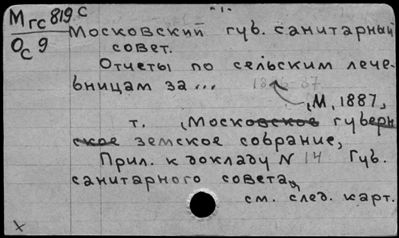 Мгс 819 С
Ос 9
- 1 -
Московский губ. санитарный
совет.
Отчеты по сельским лече-
бницам за ... 1886-87
М, 1887,
т. (Московское губерн
ское земское собрание,
Прил. к докладу N 14 Губ.
санитарного совета)
см. след. карт.
х